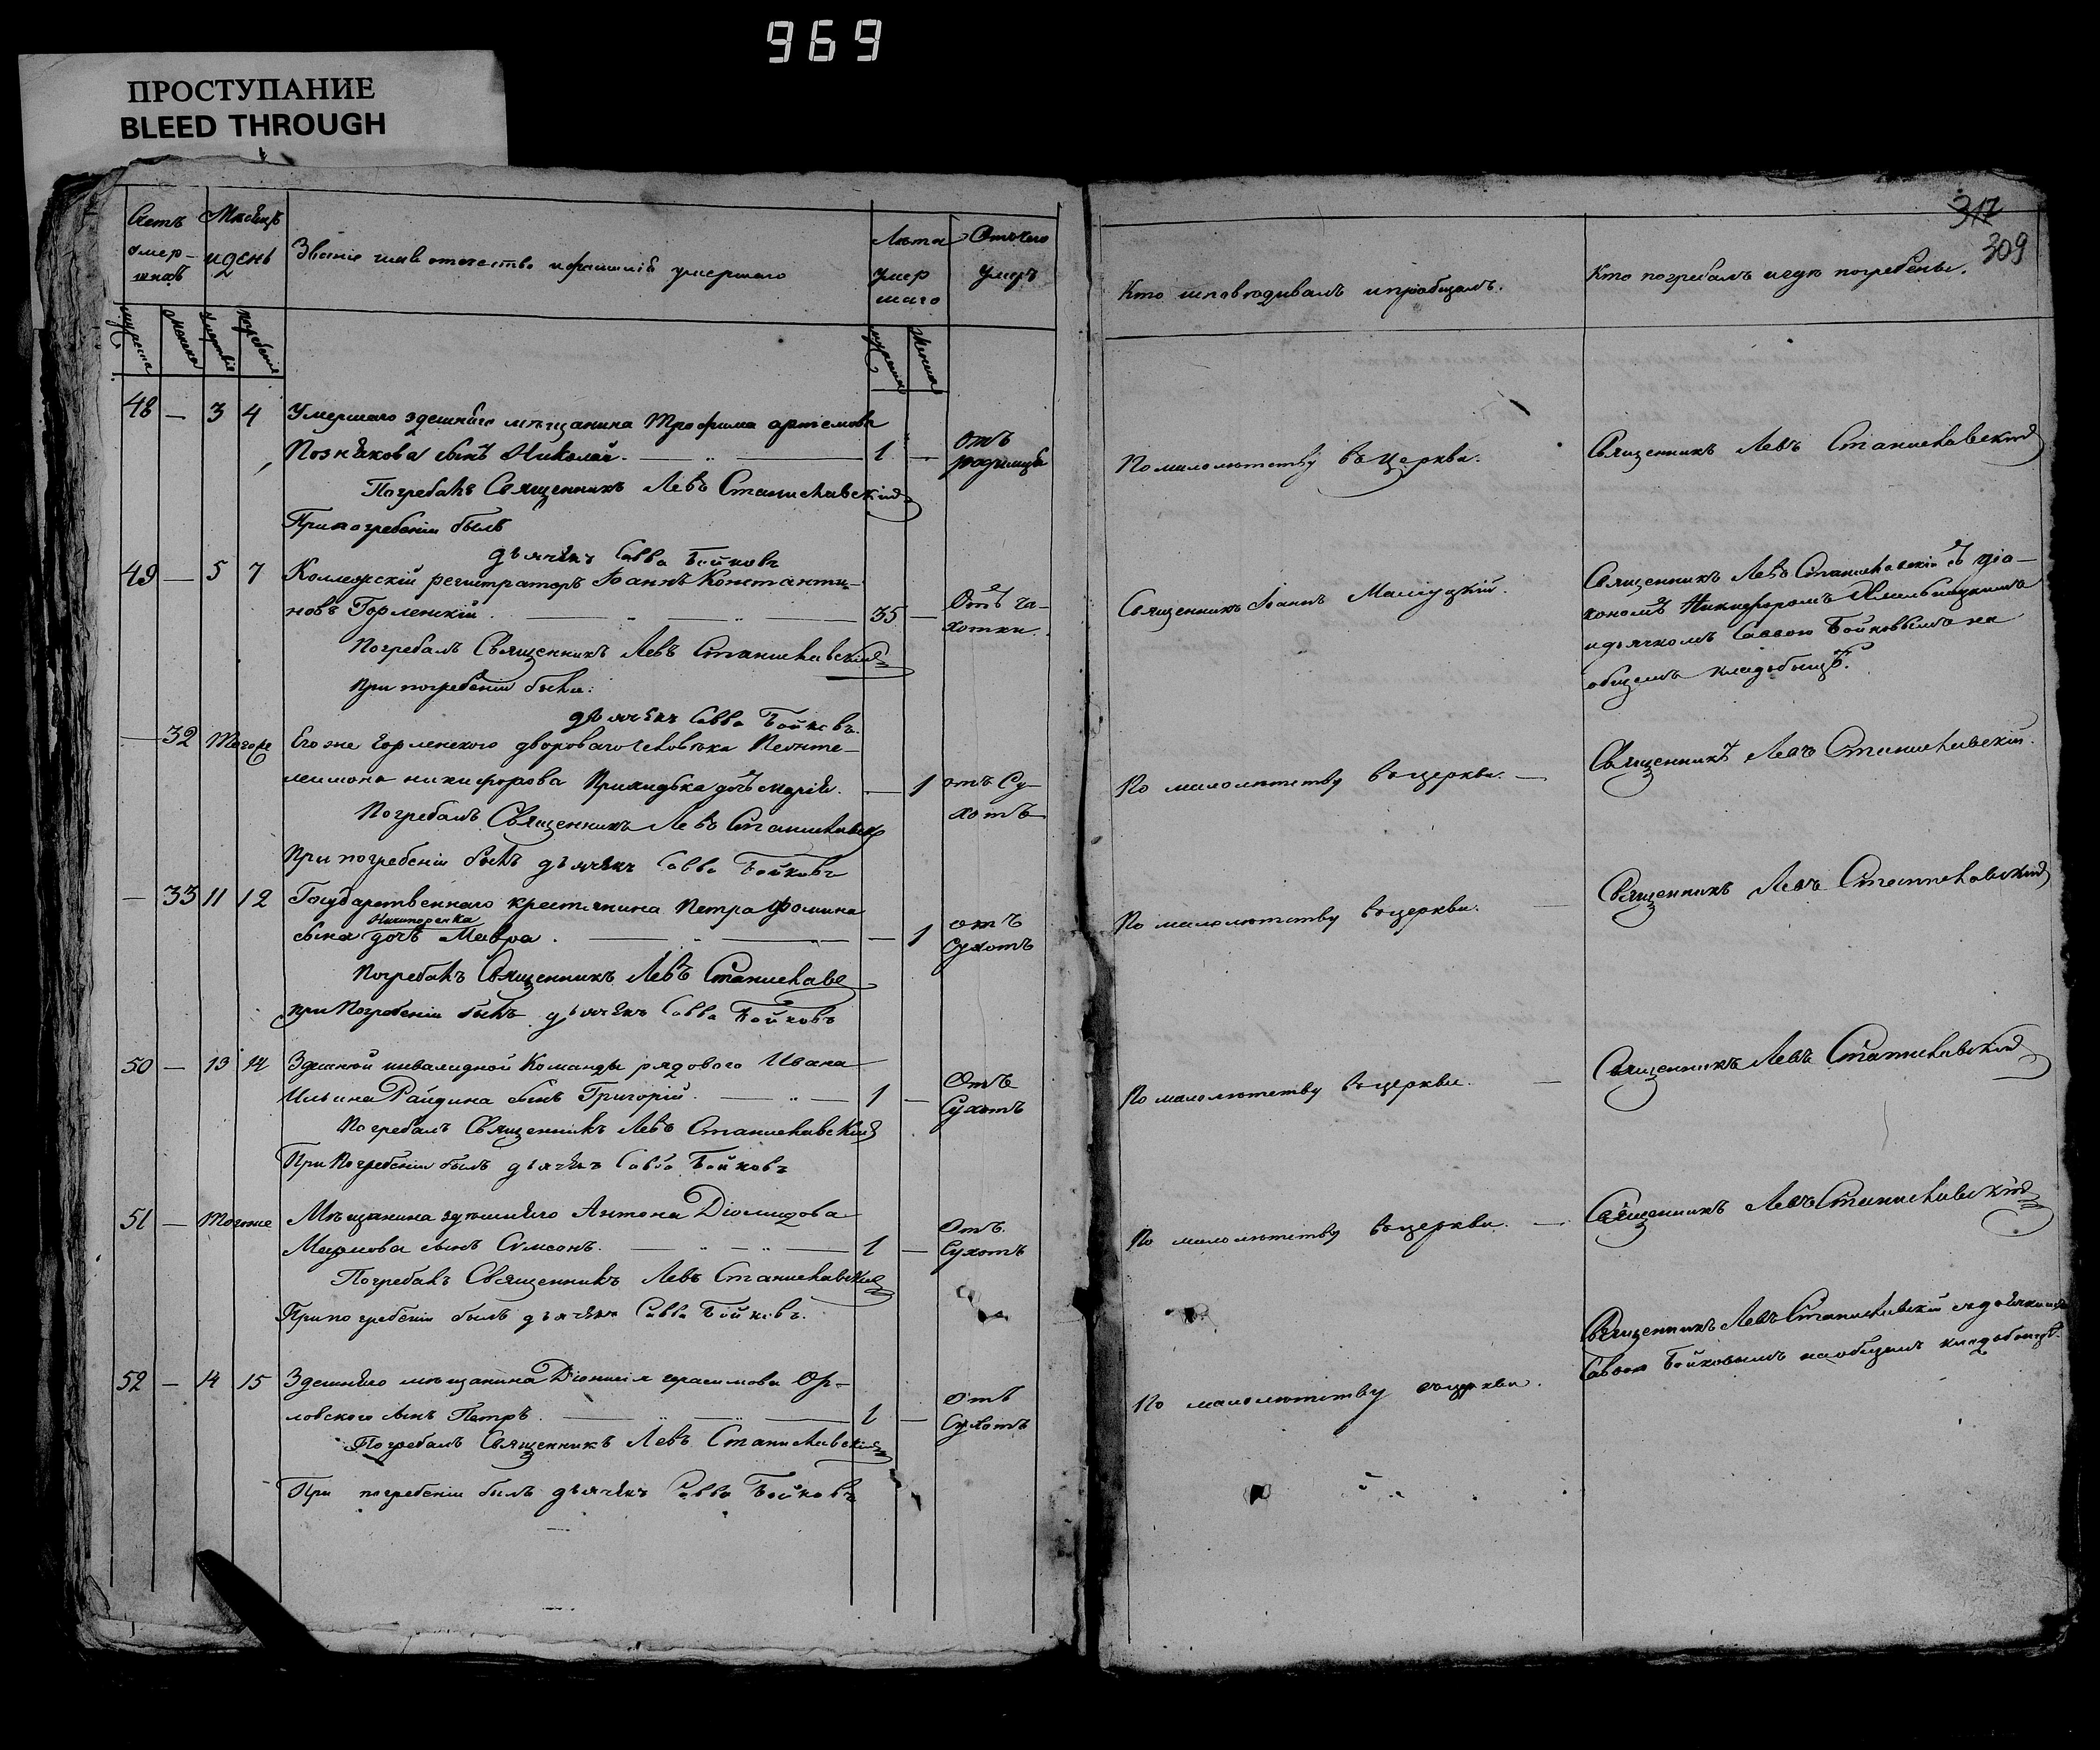 969
ПРОСТУПАНИЕ
BLEED THROUGH
317
309
Счетъ умершихъ
Мѣсяцъ и день
Званіе имя отечество и фамилія умершаго
Лѣта умершаго
Отъ чего умеръ
Кто исповѣдывалъ и пріобщалъ.
Кто погребалъ и гдѣ погребены.
48 — 3 4 Умершаго здешнѣго мѣщанина Трофима Артемова
Познякова сынъ Николай. 1 — Отъ родимца
По малолѣтству въ церкви.
Священникъ Левъ Станиславскій
Погребалъ Священникъ Левъ Станиславскій
При погребеніи былъ
дьячекъ Савва Бойковъ
49 — 5 7 Коллежскій регистраторъ Іоаннъ Константи-
новъ Горленскій. 35 — Отъ ча-
хотки.
Священникъ Іоаннъ
Священникъ Левъ Станиславскій съ діа-
кономъ Никифоромъ
и дьячкомъ Саввою Бойковымъ на
общемъ кладбищѣ.
Погребалъ Священникъ Левъ Станиславскій
При погребеніи были:
дьячекъ Савва Бойковъ.
— 32 Тогоже Его же Горленского дворового человѣка Понте-
леимона Никифорова дочь Марія. — 1 отъ Су-
хотъ
По малолѣтству въ церкви. —
Священникъ Левъ Станиславскій.
Погребалъ Священникъ Левъ Станиславск
При погребеніи былъ дьячекъ Савва Бойковъ
— 33 11 12 Государственнаго крестьянина Петра Фомина
Никиторенка
сына дочь Мавра. — 1 отъ
Сухотъ
По малолѣтству въ церкви. —
Священникъ Левъ Станиславскій
Погребалъ Священникъ Левъ Станислав
при Погребеніи былъ дьячекъ Савва Бойковъ
50 — 13 14 Здешней инвалидной Команды рядового Ивана
Ильина Райдина сынъ Григорій. 1 — Отъ
Сухотъ
По малолѣтству въ церкви. —
Священникъ Левъ Станиславскій
Погребалъ Священникъ Левъ Станиславскій
При Погребеніи былъ дьячекъ Савва Бойковъ
51 — Тогоже Мѣщанина здѣшнѣго Антона Діомидова
сынъ Сѵмеонъ. 1 — Отъ
Сухотъ
По малолѣтству въ церкви. —
Священникъ Левъ Станиславскій
Погребалъ Священникъ Левъ Станиславскій
При погребеніи былъ дьячекъ Савва Бойковъ.
Священникъ Левъ Станиславскій съ дьячкомъ
Саввою Бойковымъ на общемъ кладбищѣ.
52 — 14 15 Здешнѣго мѣщанина Діонисія Герасимова Ор-
ловского сынъ Петръ. 1 — Отъ
Сухотъ
По малолѣтству въ церкви.
Погребалъ Священникъ Левъ Станиславскій
При погребеніи былъ дьячекъ Савва Бойковъ